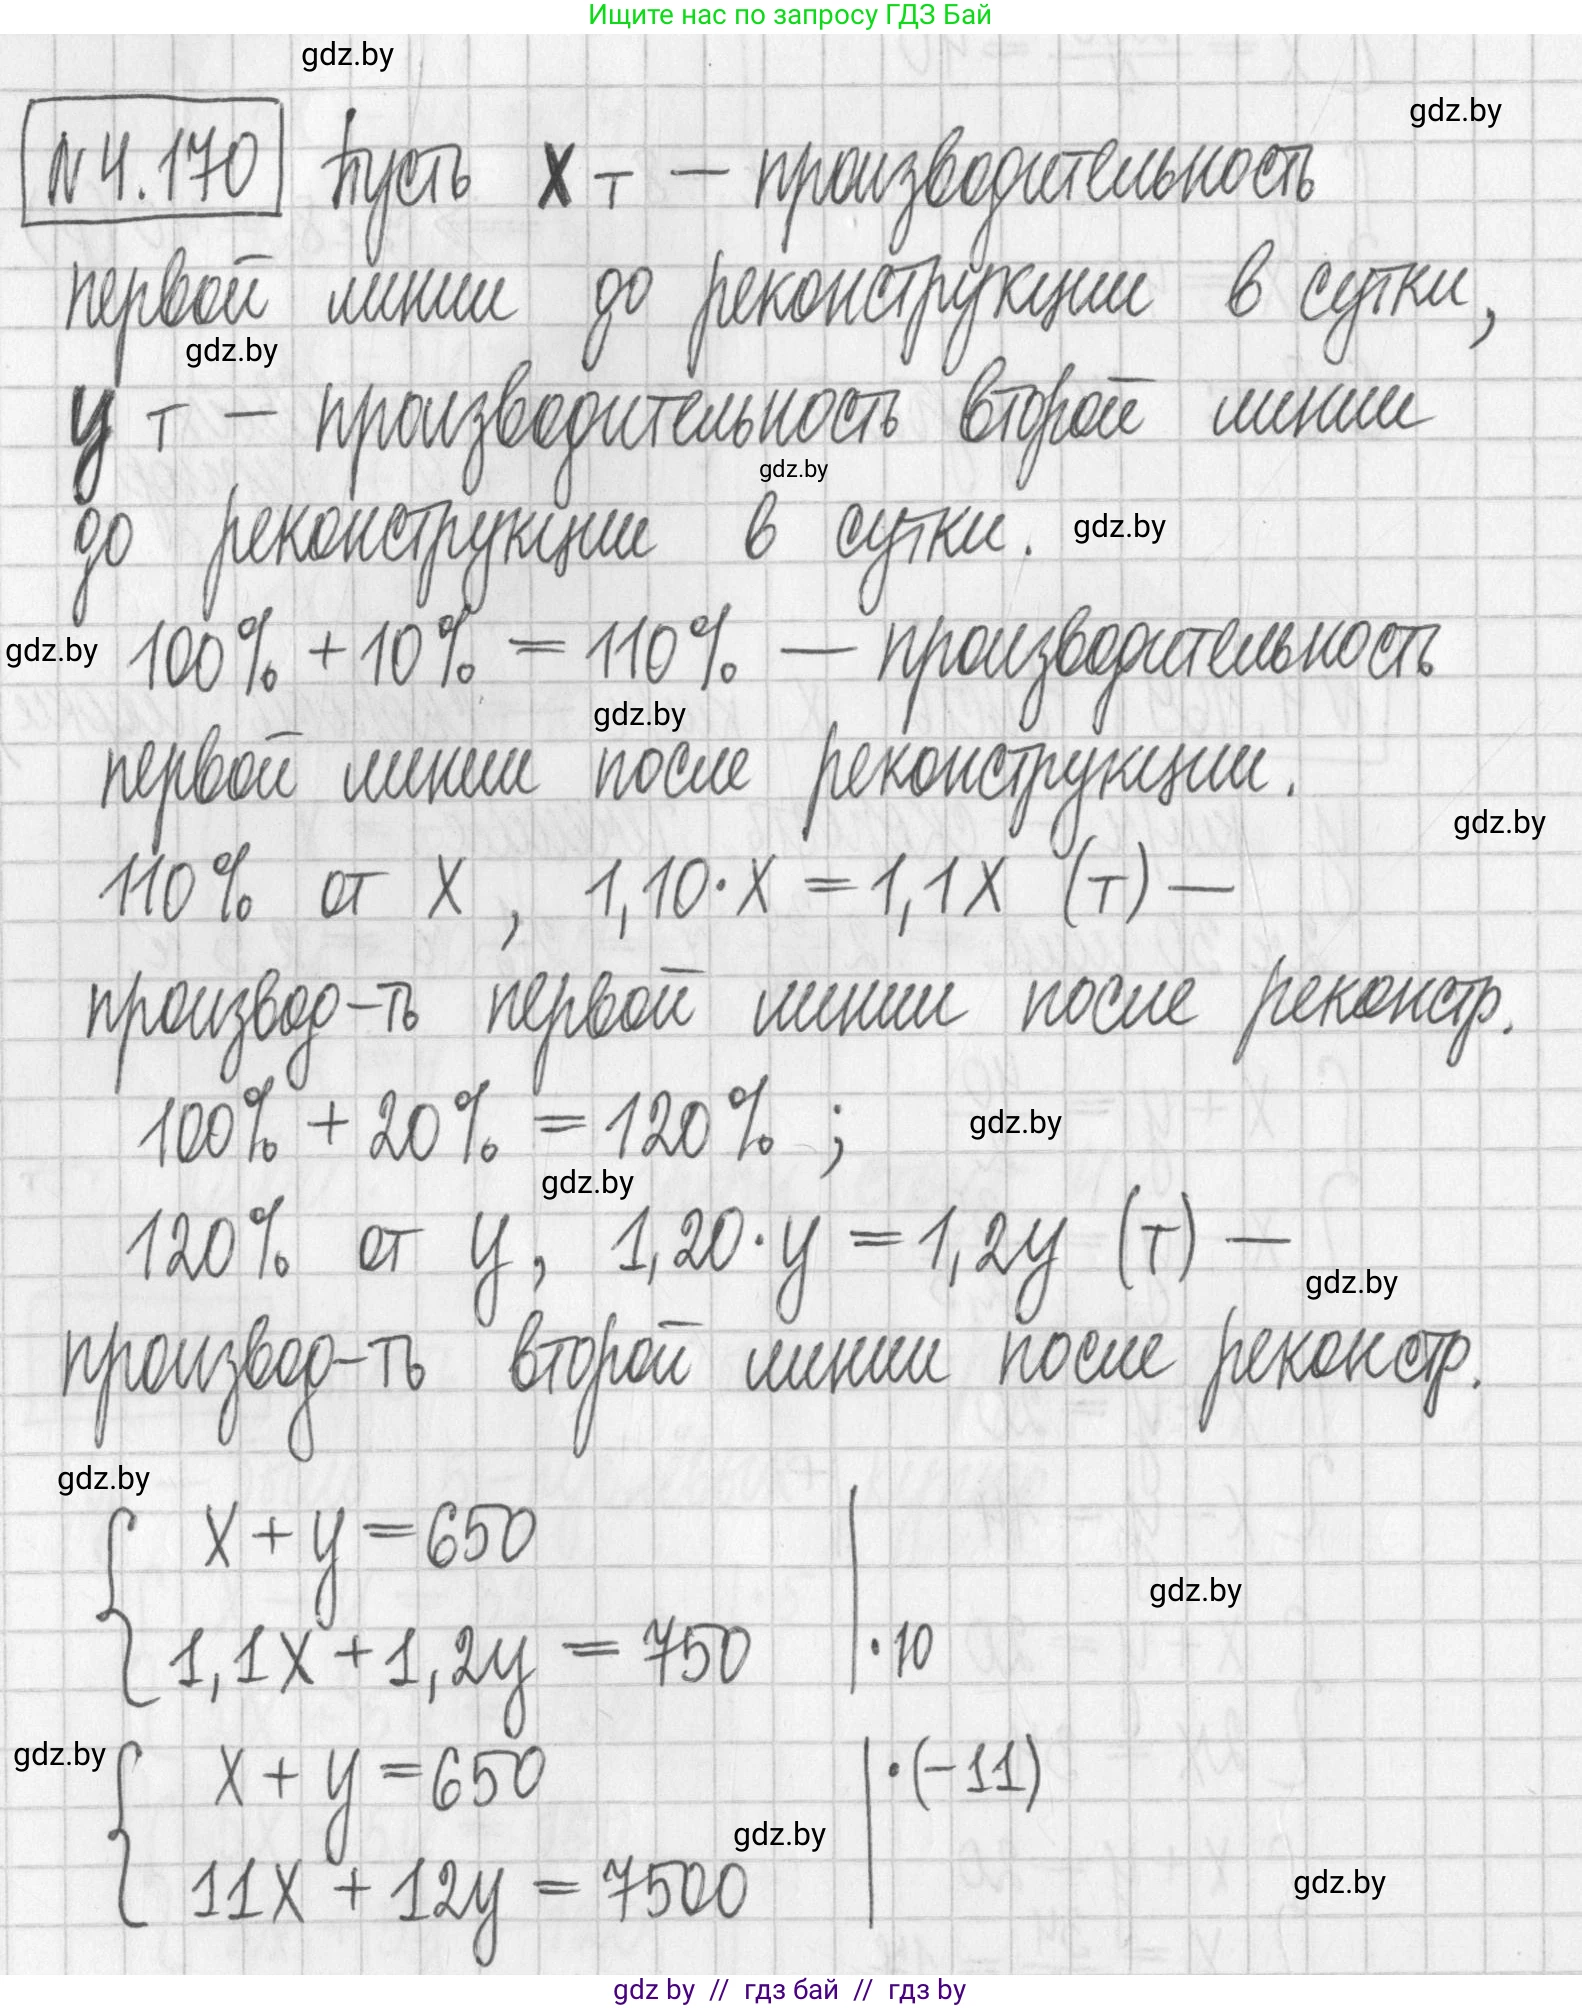 Ищите нас по запросу ГДЗ Бай
gdz.by
gdz.by
№4.170 Пусть x т — производительность
первой линии до реконструкции в сутки,
gdz.by
y т — производительность второй линии
gdz.by
до реконструкции в сутки.
gdz.by
gdz.by
100% + 10% = 110% — производительность
gdz.by
первой линии после реконструкции.
gdz.by
110% от x, 1,10·x = 1,1x (т) —
производ-ть первой линии после реконстр.
100% + 20% = 120% ;
gdz.by
gdz.by
120% от y, 1,20·y = 1,2y (т) —
gdz.by
производ-ть второй линии после реконстр.
gdz.by
{ x + y = 650 |
gdz.by
1,1x + 1,2y = 750 | ·10
gdz.by
{ x + y = 650 | ·(-11)
gdz.by
11x + 12y = 7500 |
gdz.by
gdz by // гдз бай // гдз by